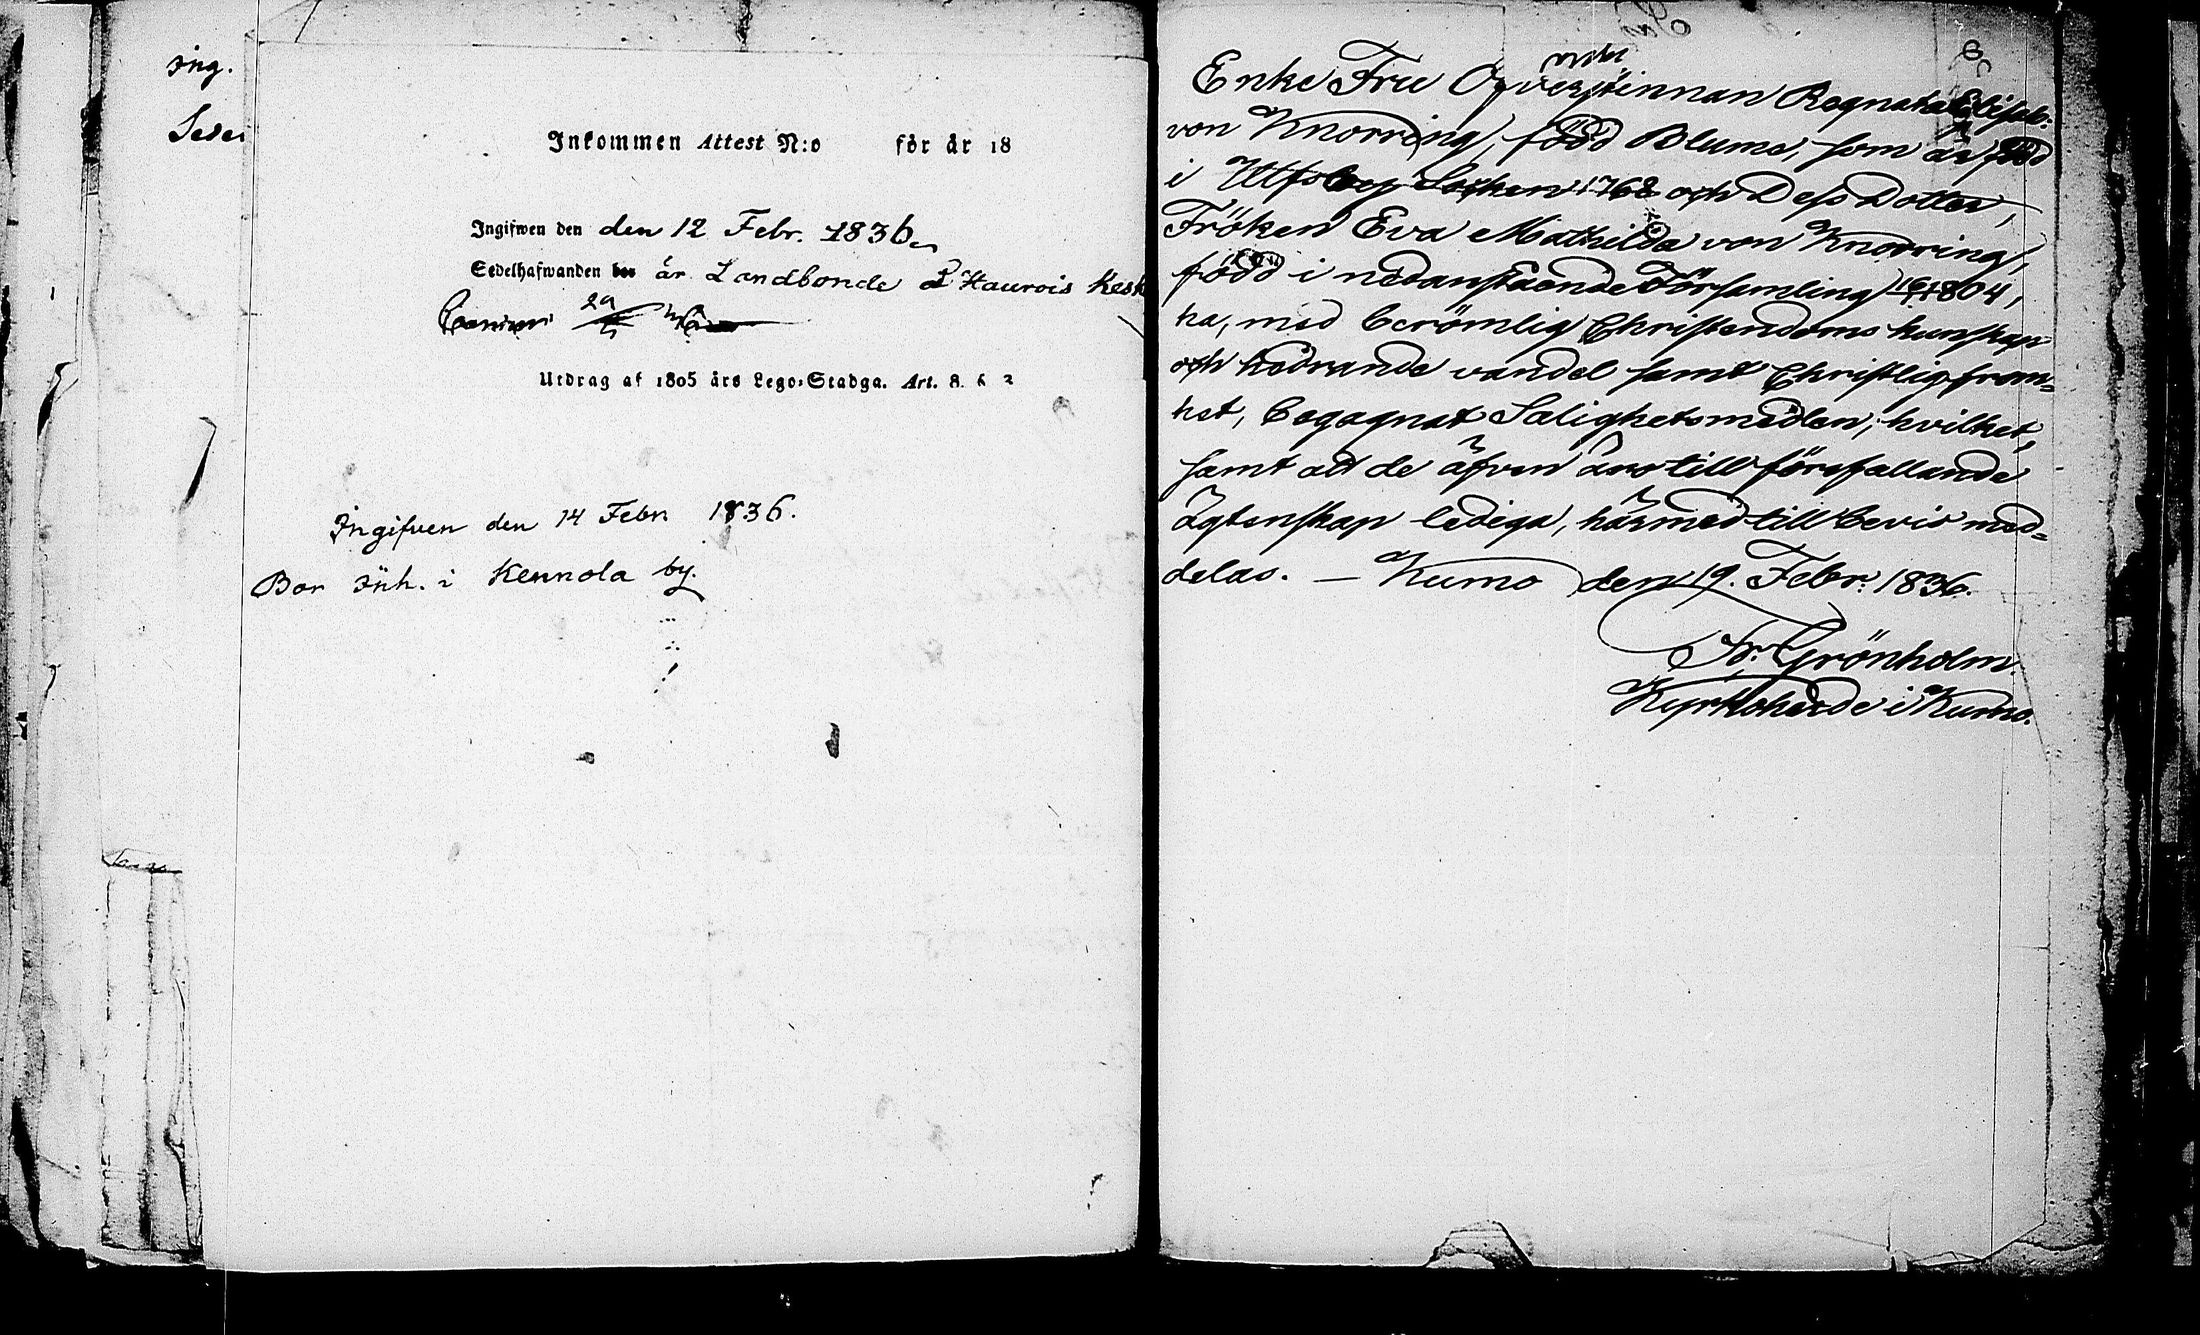 ing.
Sede
Inkommen Attest N:o för år 18
Ingifwen den den 12 Febr. 1836.
Sedelhafwanden bor är Landbonde å Haurois Kesk
Utdrag af 1805 års Lego-Stadga. Art. 8. § 2
Ingifven den 14 Febr. 1836.
Bor inh. i Kennola by.
Enke Fru Öfverstinnan Regnata Elisab.
von Knorring, född Blume, som är född
i Ulfsby Socken 1768 och Dess Dotter,
Fröken Eva Mathilda von Knorring,
född i nedanstående Församling 1804,
ha, med berömlig Christendoms kunskap
och hedrande vandel samt Christlig from=
het, begagnat Salighetsmedlen; hvilket,
samt att de äfven äro till förefallande
ägtenskap lediga, härmed till bevis med=
delas. — Kumo den 19. Febr. 1836.
Fr. Grönholm.
Kyrkoherde i Kumo.